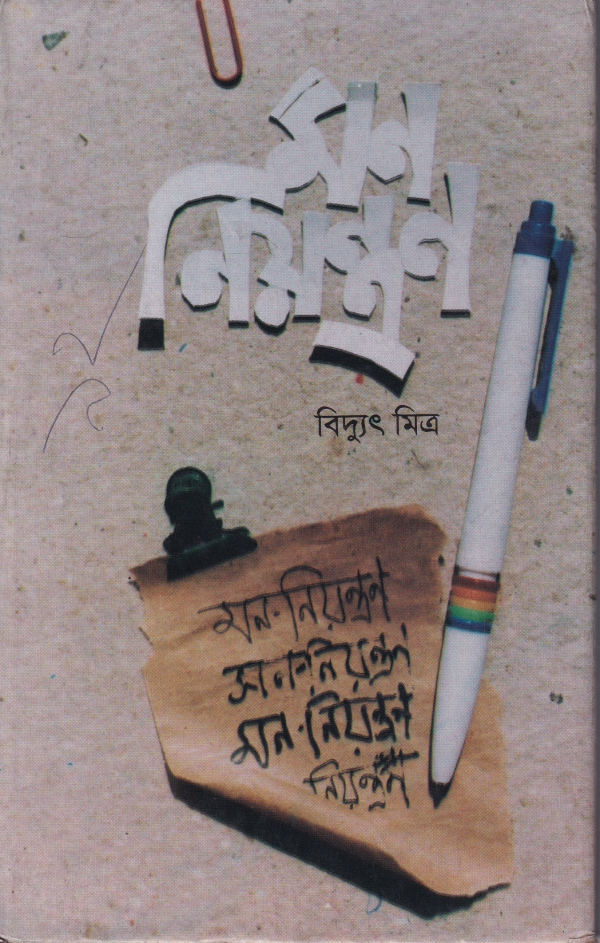 মন
নিয়ন্ত্রণ
বিদ্যুৎ মিত্র
মন-নিয়ন্ত্রণ
মন-নিয়ন্ত্রণ
মন-নিয়ন্ত্রণ
নিয়ন্ত্রণ